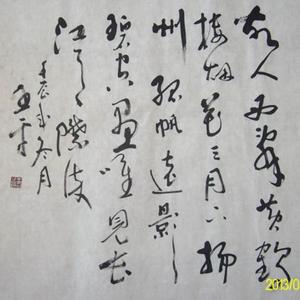 故人西辭黃鶴
樓煙花三月下揚
州孤帆遠影
碧空盡唯見長
江天際流
壬辰年冬月
2013/0